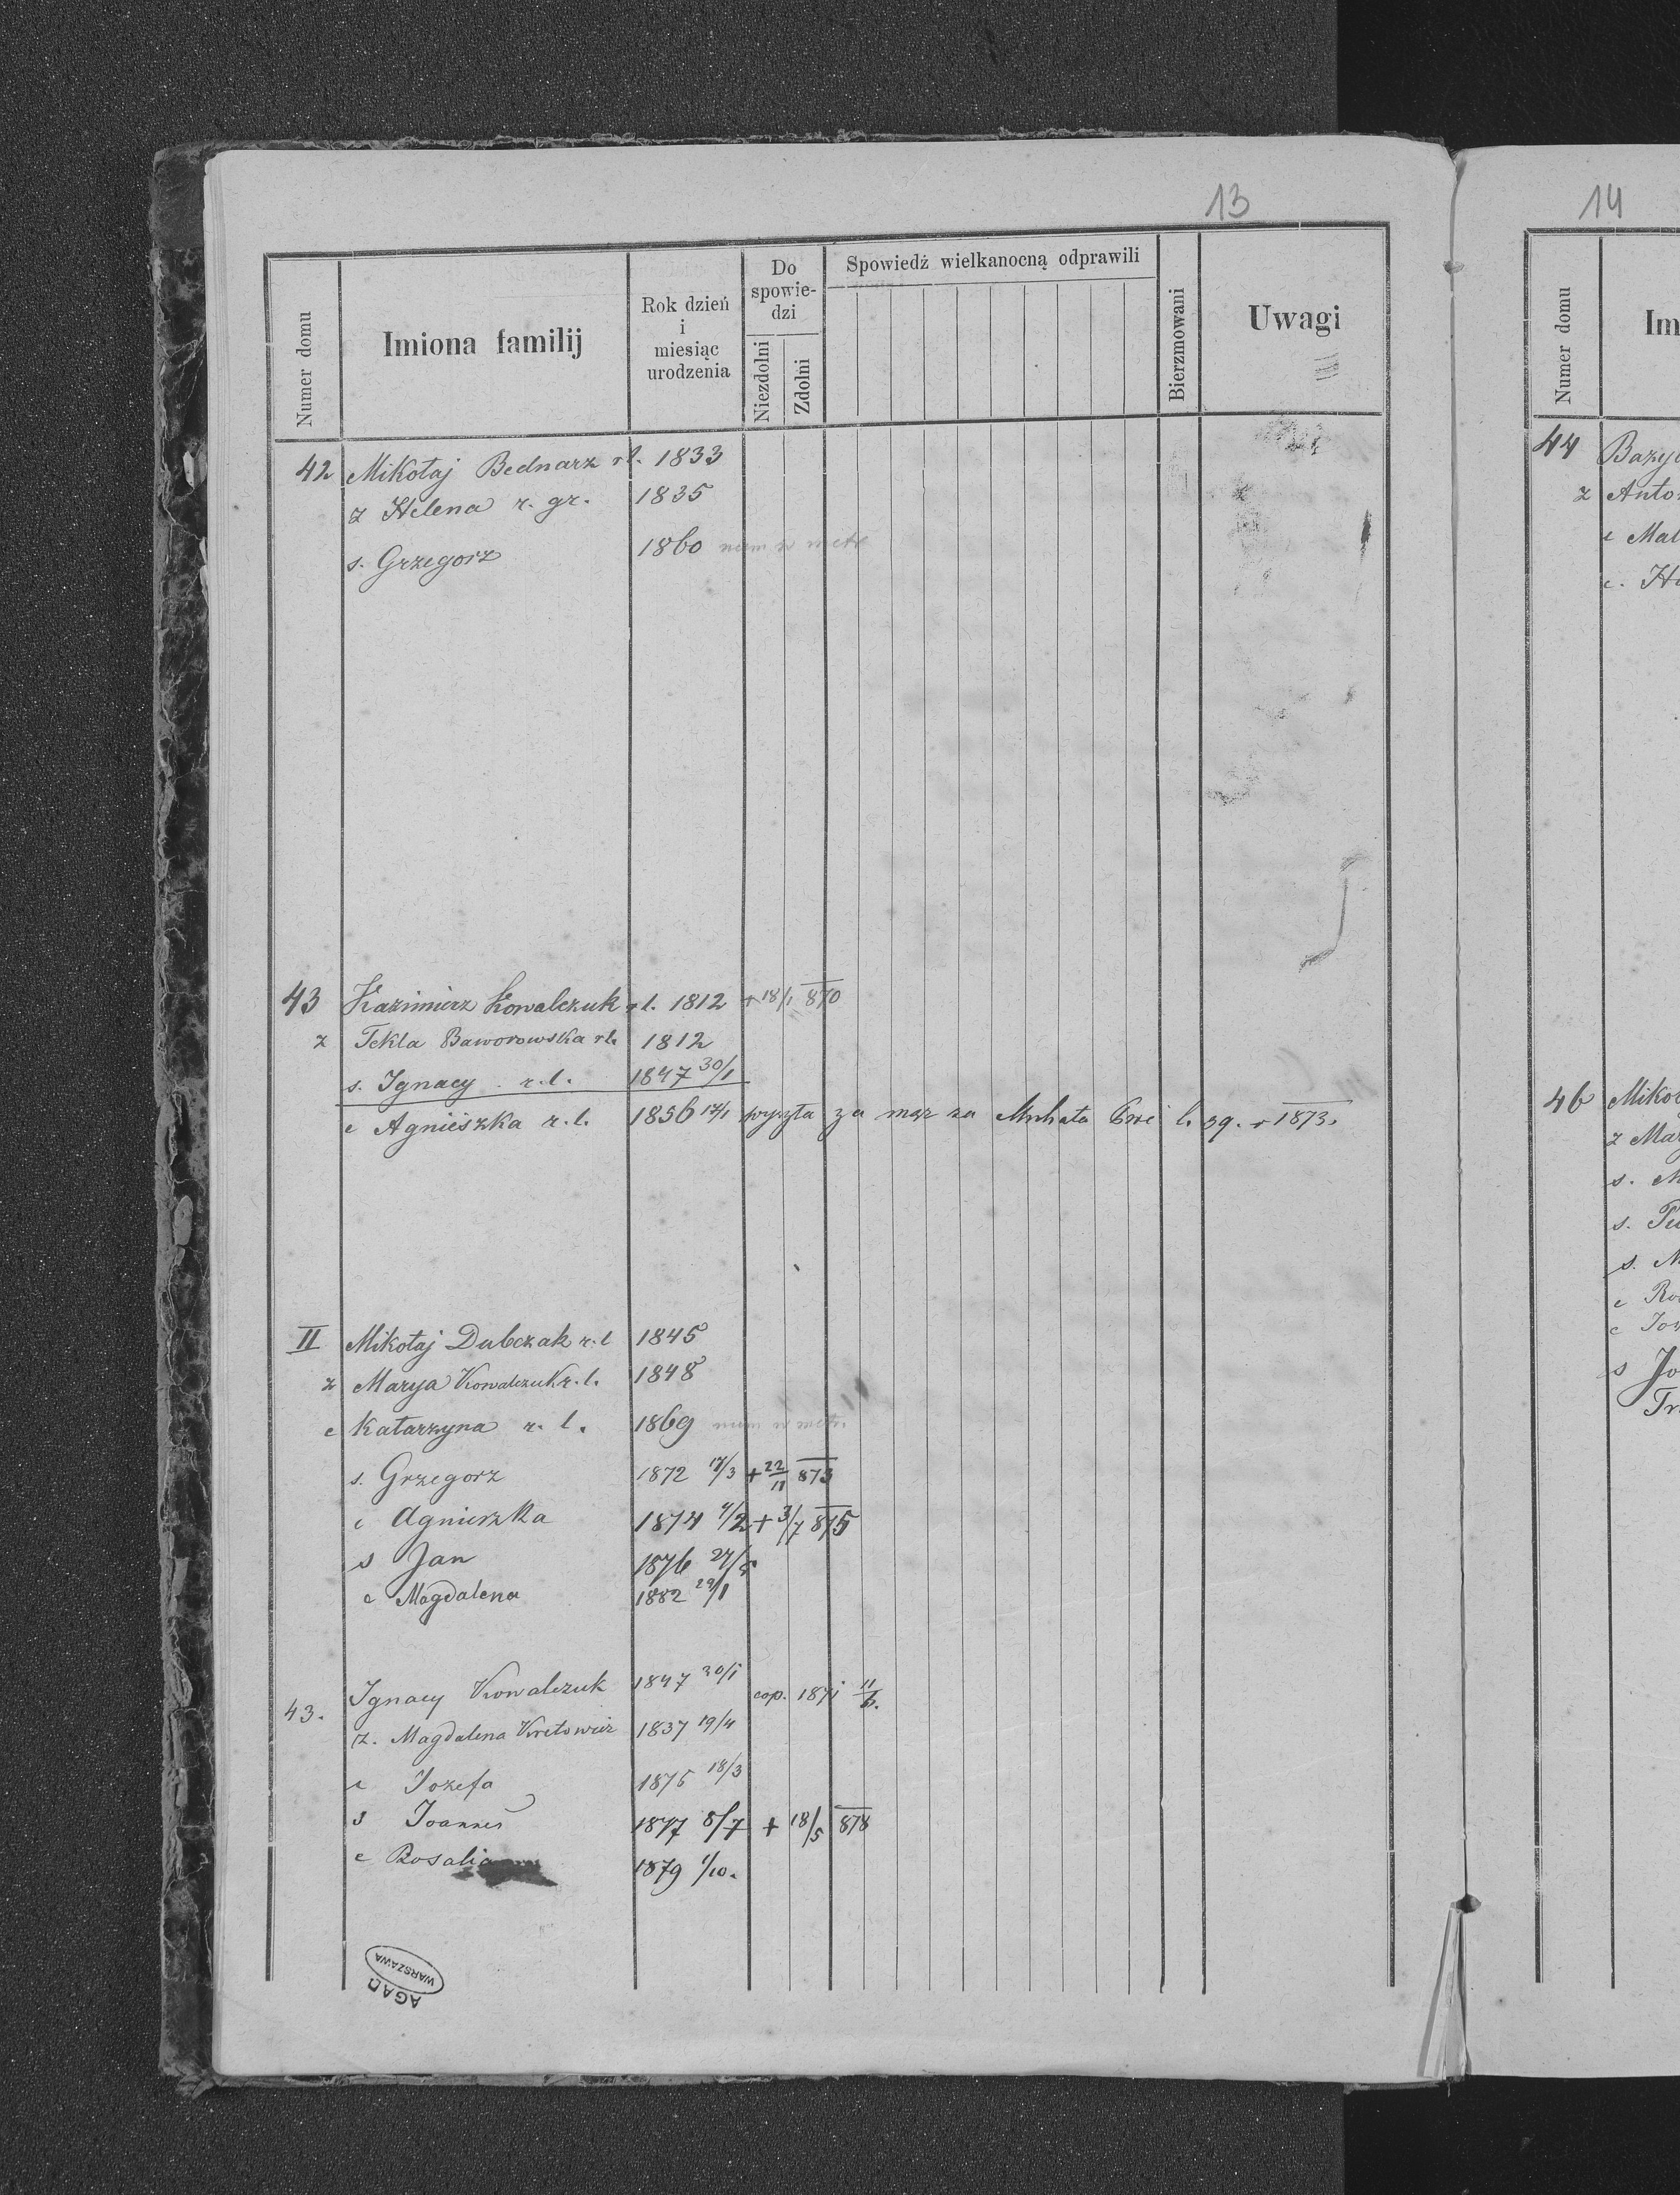 13
14
Numer domu
Imiona familij
Rok dzień
i
miesiąc
urodzenia
Do
spowie-
dzi
Niezdolni
Zdolni
Spowiedź wielkanocną odprawili
Bierzmowani
Uwagi
42 Mikołaj Bednarz rl. 1833
z Helena r. gr. 1835
s. Grzegorz 1860
43 Kazimierz Kowalczuk rl. 1812 + 18/1 870
z Tekla Baworowska rl. 1812
s. Ignacy r.l. 1847 30/1
c Agnieszka r.l. 1856 wyszła za mąż za l. 39. 1873.
II Mikołaj Dubczak r.l 1845
z Marya Kowalczuk r.l. 1848
c Katarzyna r. l. 1869
s. Grzegorz 1872 17/3 + 22/11 873
c Agnieszka 1874 4/2 + 3/7 875
s Jan 1876 27/5
c Magdalena 1882 29/1
43. Ignacy Kowalczuk 1847 30/1 cop. 1871 11/6.
z. Magdalena Kretowicz 1837 19/4
c Jozefa 1875 18/3
s Joannes 1877 8/7 + 18/5 878
c Rosalia 1879 1/10.
AGAD
WARSZAWA
Numer domu
Im
44
z Anto
c Mal
46 Miko
z Mar